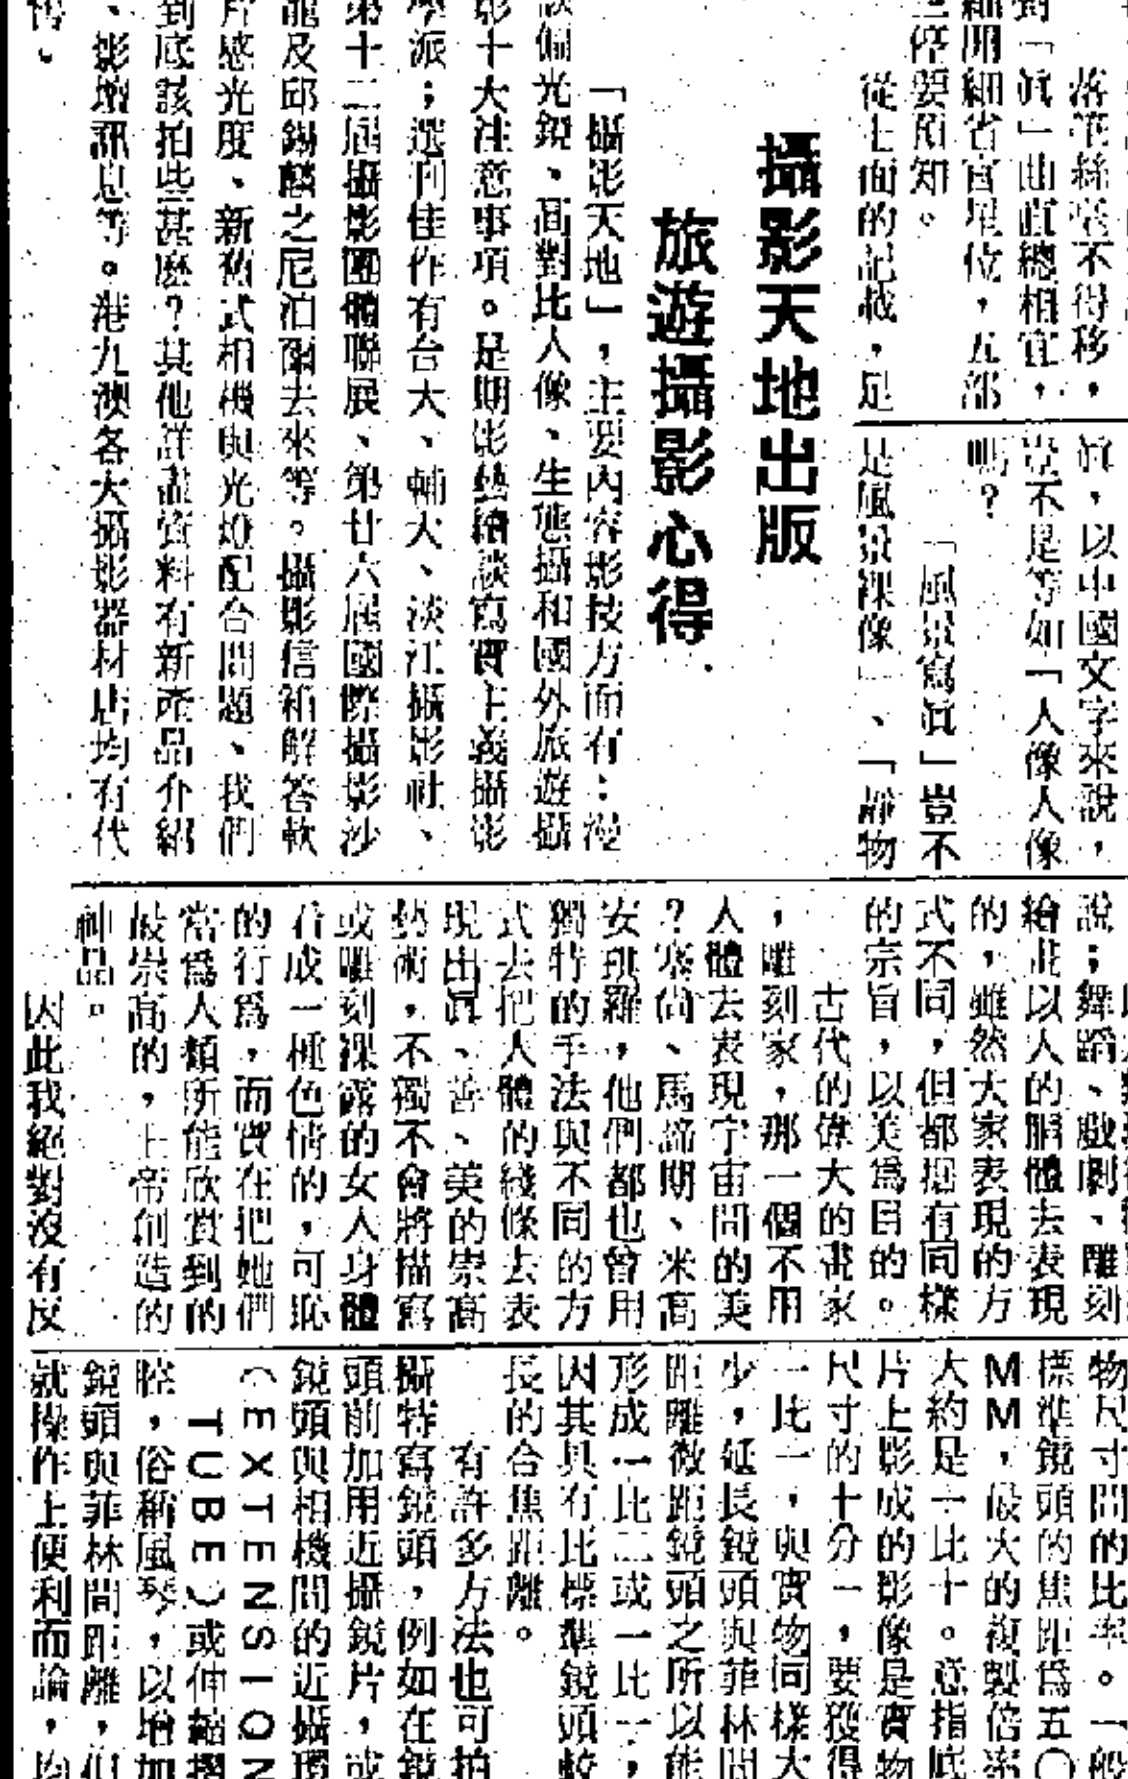 落筆絲毫不得移，
對「眞」曲直總相宜，
細開細省官星位，五部
三停要預知。
從上面的記載，足
眞，以中國文字來說，
豈不是等如「人像人像
嗎？
「風景寫眞」豈不
是風景裸像」、「靜物
攝影天地出版
旅遊攝影心得
「攝影天地」，主要內容影技方面有：漫
談偏光鏡、高對比人像、生態攝和國外旅遊攝
影十大注意事項。是期影藝縱談寫實主義攝影
學派；選刊佳作有台大、輔大、淡江攝影社、
第十二屆攝影團體聯展、第廿六屆國際攝影沙
龍及邱錫麟之尼泊爾去來等。攝影信箱解答軟
片感光度、新舊式相機與光燈配合問題、我們
到底該拍些甚麽？其他詳盡資料有新產品介紹
、影壇訊息等。港九澳各大攝影器材店均有代
售。
說；舞蹈、戲劇、雕刻
繪畫以人的胴體去表現
的，雖然大家表現的方
式不同，但都抱有同樣
的宗旨，以美爲目的。
古代的偉大的畫家
，雕刻家，那一個不用
人體去表現宇宙間的美
？塞尚、馬諦期、米高
安琪羅，他們都也曾用
獨特的手法與不同的方
式去把人體的綫條去表
現出眞、善、美的崇高
藝術，不獨不會將描寫
或雕刻裸露的女人身體
看成一種色情的，可恥
的行爲，而實在把她們
當爲人類所能欣賞到的
最崇高的，上帝創造的
神品。
因此我絕對沒有反
物尺寸間的比率。一般
標準鏡頭的焦距爲五〇
MM，最大的複製倍率
大約是一比十。意指底
片上影成的影像是實物
尺寸的十分一，要獲得
一比一，與實物同樣大
少，延長鏡頭與菲林間
距離微距鏡頭之所以能
形成一比二或一比一，
因其具有比標準鏡頭較
長的合焦距離。
有許多方法也可拍
攝特寫鏡頭，例如在鏡
頭前加用近攝鏡片，或
鏡頭與相機間的近攝環
（EXTENSION
TUBE）或伸縮摺
腔，俗稱風琴，以增加
鏡頭與菲林間距離，但
就操作上便利而論，均